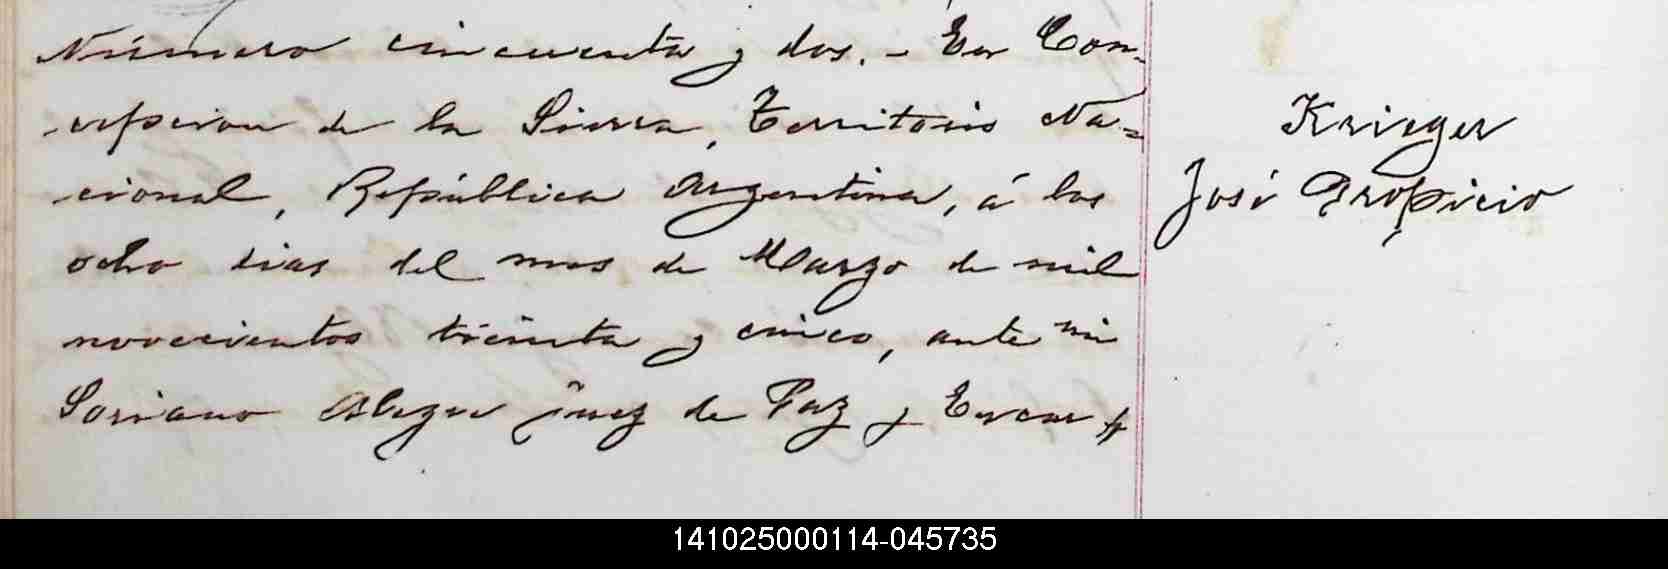 Número cincuenta y dos. - En Con-
cepcion de la Sierra, Territorio Na-
cional, República Argentina, á los
ocho dias del mes de Marzo de mil
novecientos treinta y cinco, ante mi
Soriano Alegre Juez de Paz y Encar
Krieger
José Propicio
141025000114-045735